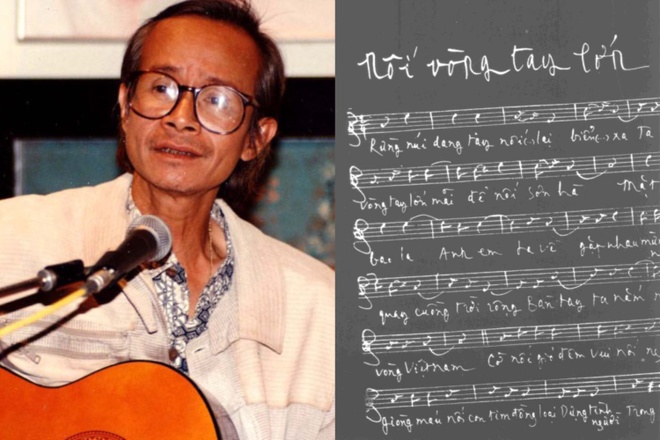 nối vòng tay lớn
Rừng núi dang tay nối lại biển xa Ta
vòng tay lớn mãi để nối sơn hà Mặt
bao la Anh em ta về gặp nhau
quay cuồng trời rộng bàn tay ta nắm
vòng Việt nam Cờ nối gió đêm vui nối
giòng máu nối con tim đồng loại Dựng tình người Trong